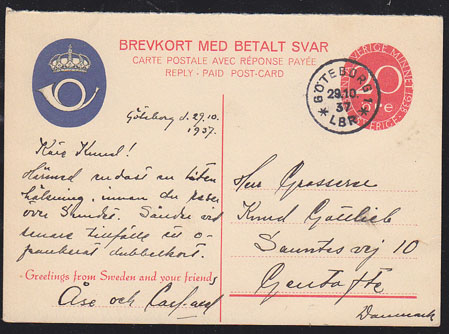 BREVKORT MED BETALT SVAR
CARTE POSTALE AVEC RÉPONSE PAYÉE
REPLY - PAID POST-CARD
SVERIGE MUNNEN 1638
ÖRE
SVERIGE
GÖTEBORG 1
29.10.
37
* LBR *
Göteborg d. 29.10.
1937.
Käre Knud!
Härmed endast en liten
hälsning, innan du reser
över Sundet. Sänder vid
senare tillfälle ett o-
frankerat dubbelkort.
- Greetings from Sweden and your friends
Åse och
Herr Grosserer
Knud Gottlieb
vej 10
Gentofte
Danmark